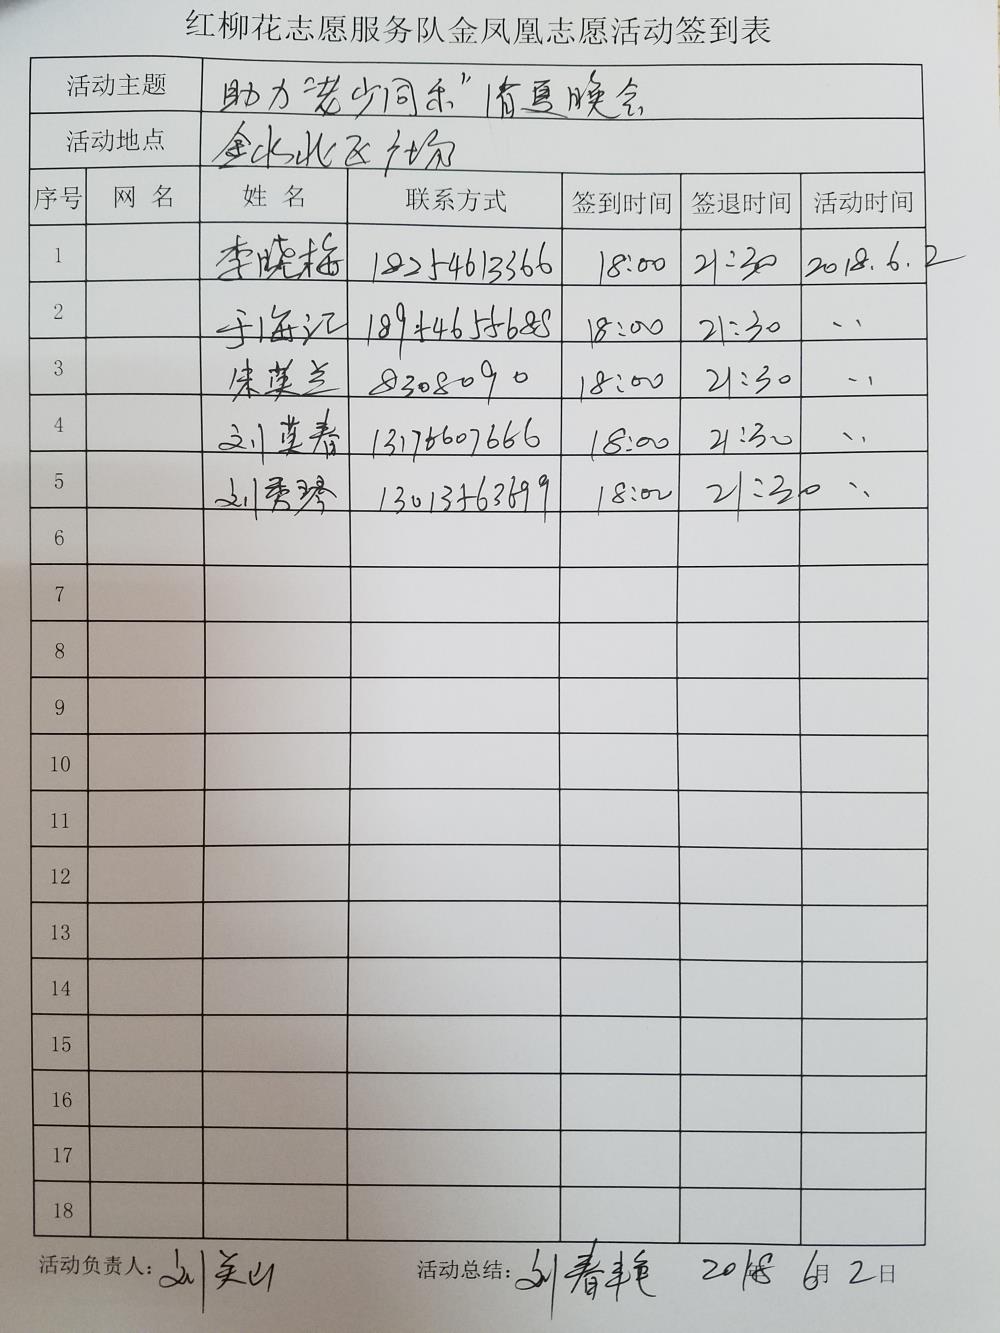 红柳花志愿服务队金凤凰志愿活动签到表
活动主题 助力“老少同乐”清夏晚会
活动地点 金水北区广场
序号 网名 姓名 联系方式 签到时间 签退时间 活动时间
1 李晓梅 18254613366 18:00 21:30 2018.6.2
2 于海江 18954655685 18:00 21:30 〃
3 朱英兰 8308090 18:00 21:30 〃
4 刘英春 13176607666 18:00 21:30 〃
5 刘秀琴 13013563699 18:00 21:30 〃
6
7
8
9
10
11
12
13
14
15
16
17
18
活动负责人: 刘英山 活动总结: 刘春艳 2018年6月2日